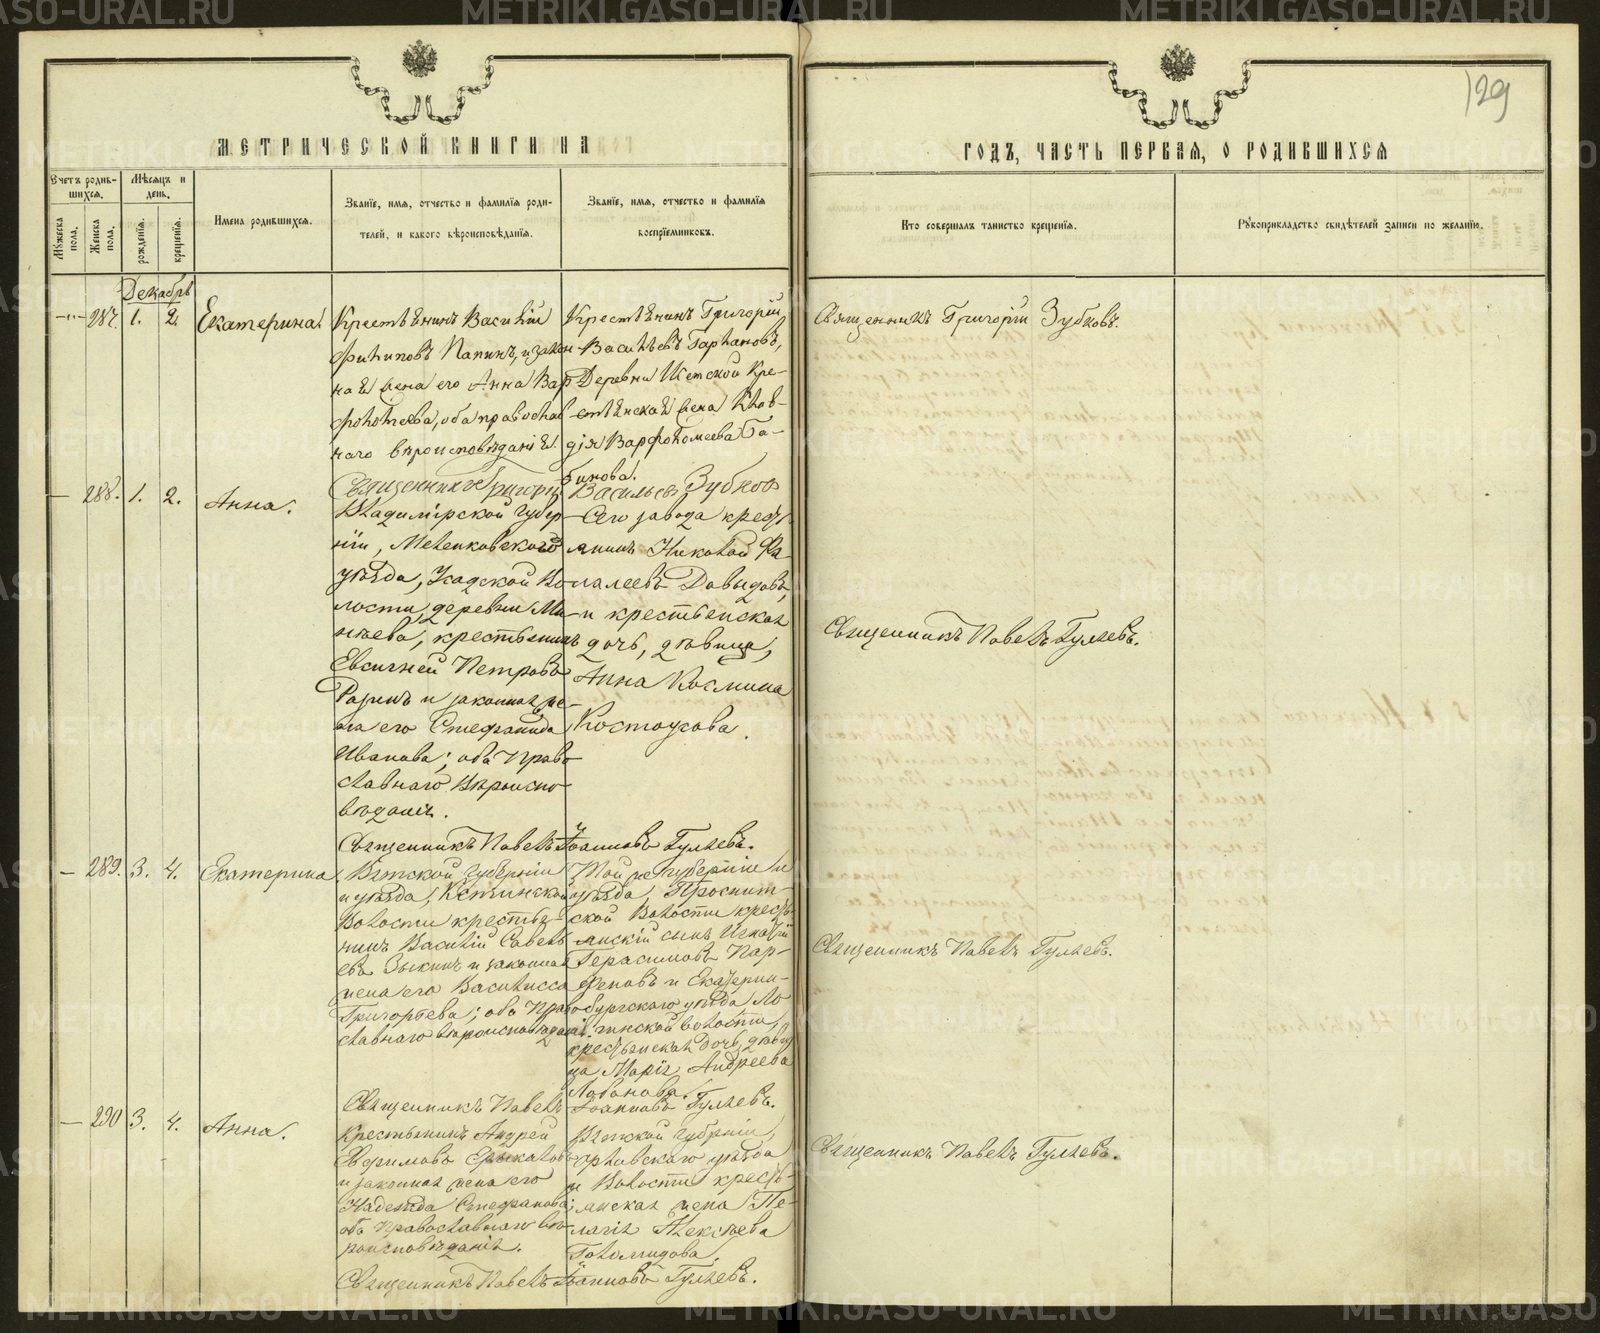 129
МЕТРИЧЕСКОЙ КНИГИ НА
ГОДЪ, ЧАСТЬ ПЕРВАЯ, О РОДИВШИХСЯ
Счетъ родив-
шихся.
Мѣсяцъ и
день.
Мужеска
пола.
Женска
пола.
рожденія.
крещенія.
Имена родившихся.
Званіе, имя, отчество и фамилія роди-
телей, и какого вѣроисповѣданія.
Званіе, имя, отчество и фамилія
воспріемниковъ.
Кто совершалъ таинство крещенія.
Рукоприкладство свидѣтелей записи по желанію.
Декабрь
287. 1. 2. Екатерина
Крестьянинъ Василій
Филиповъ Папинъ, и закон-
ная жена его Анна Вар
фоломеева, оба православ
наго вѣроисповѣданія.
Крестьянинъ Григорій
Васильевъ
Деревни Кре-
стьянская жена Клав-
дія Варфоломеева Ба-
бинова.
Священникъ Григорій Зубковъ.
Священникъ Григорій Васильевъ Зубков
288. 1. 2. Анна.
Владимірской Губер
ніи, Меленковскаго
уѣзда, Усадской Во
лости, деревни Ми-
нѣева, крестьянинъ
Евсигней Петровъ
Разинъ и законная же-
на его Стефанида
Иванова; оба Право
славнаго Вѣроиспо
вѣданія.
Сего завода крестья
нинъ Николай Фа
лалеевъ Давыдовъ,
и крестьянская
дочь, дѣвица,
Анна Космина
Костоусова.
Священникъ Павелъ Гуляевъ.
Священникъ Павелъ Іоанновъ Гуляевъ.
289. 3. 4. Екатерина
Вятской Губерніи
и уѣзда,
Волости крестья-
нинъ Василій Савель
евъ Зыкинъ и законная
жена его Василисса
Григорьева; оба Право
славнаго вѣроисповѣданія.
Той же губерніи и
уѣзда, Просниц-
кой Волости крестья-
янскій сынъ Игнатій
Герасимовъ Пар-
феновъ и Екатерин-
бургскаго уѣзда Ло
гинской волости,
крестьянская дочь дѣви
ца Марія Андреева
Лобанова.
Священникъ Павелъ Гуляевъ.
Священникъ Павелъ Іоанновъ Гуляевъ.
290 3. 4. Анна.
Крестьянинъ Андрей
Ефимовъ
и законная жена его
Надежда Стефанова;
оба Православнаго вѣ-
роисповѣданія.
Вятской Губерніи,
Орловскаго уѣзда
и Волости крестья-
янская жена Пе-
лагія Алексѣева
Голомидова.
Священникъ Павелъ Гуляевъ.
Священникъ Павелъ Іоанновъ Гуляевъ.
METRIKI.GASO-URAL.RU